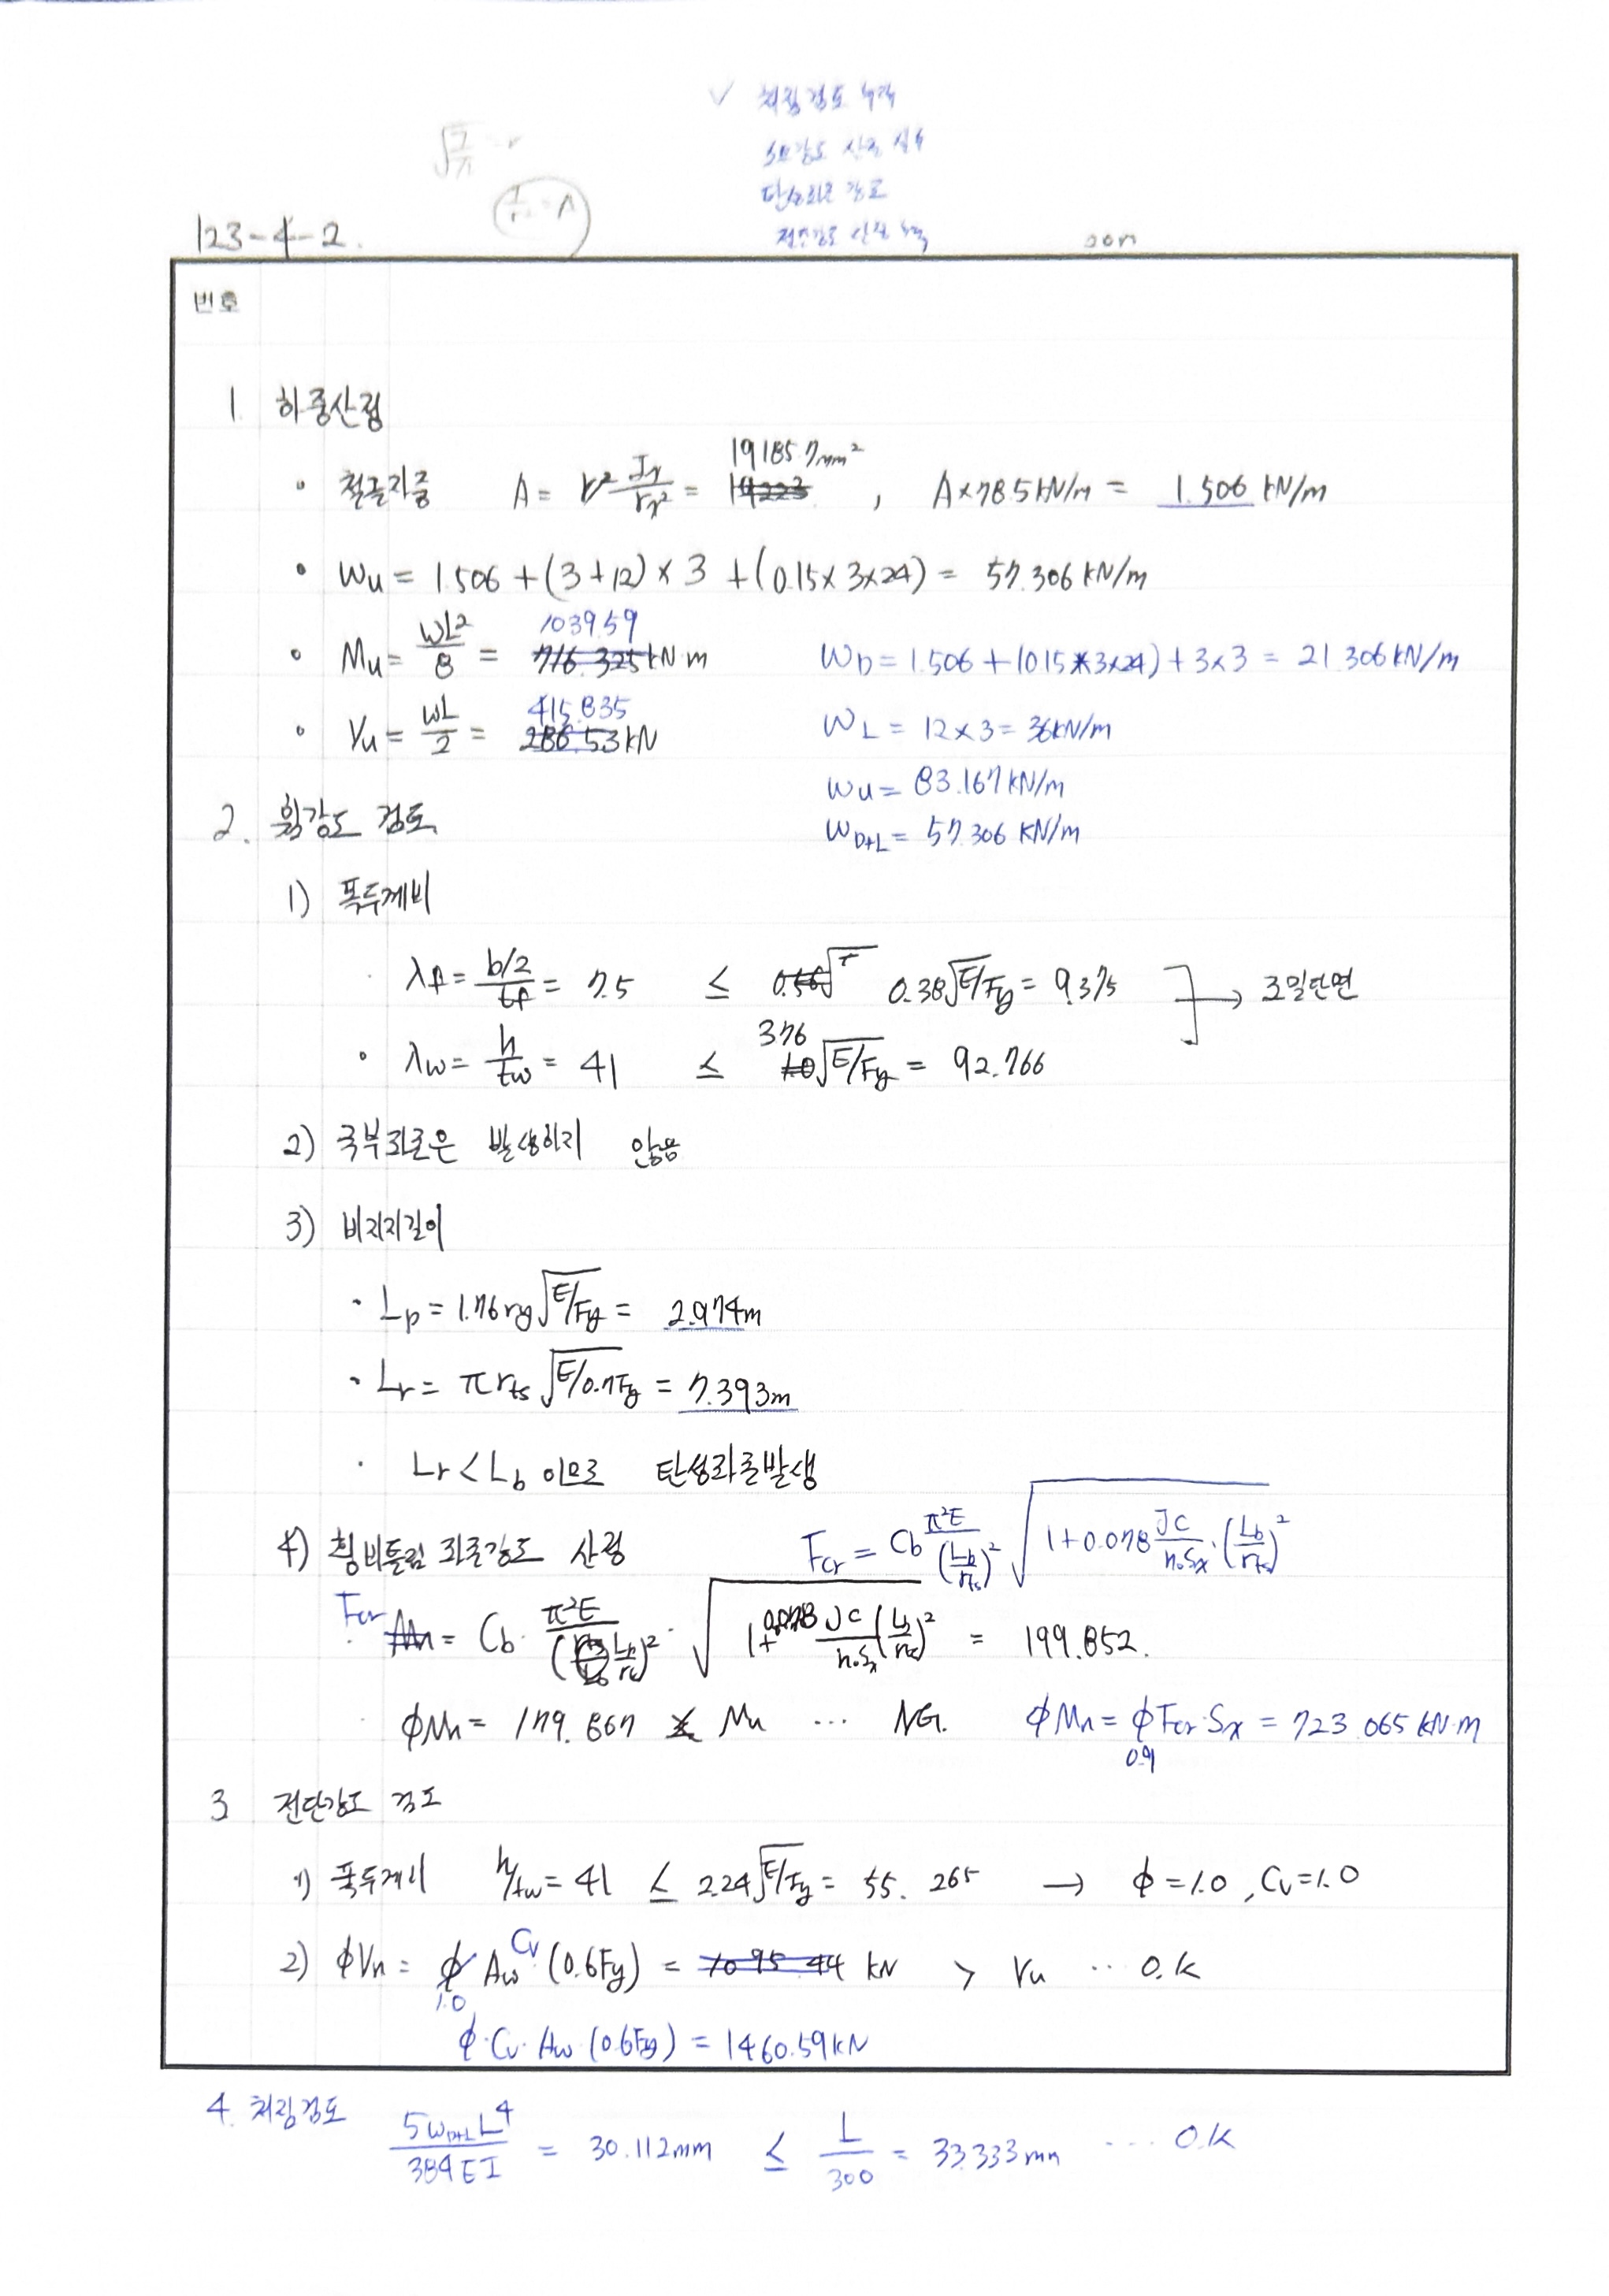 ✓ 처짐검도 누락
휨강도 산정 실수
탄성좌굴 강도
전단강도 산정 누락
√
123-4-2.
번호
1 하중산정
• 철골자중 A = r² Jx/rx² = 19185.7mm² , A×78.5kN/m = 1.506 kN/m
• Wu = 1.506 + (3+12) × 3 + (0.15×3×24) = 57.306 kN/m
• Mu = WL²/8 = 1039.59 716.325 kN·m
WD = 1.506 + (0.15×3×24) + 3×3 = 21.306 kN/m
• Vu = WL/2 = 415.835 286.53 kN
WL = 12×3 = 36kN/m
Wu = 83.167kN/m
WD+L = 57.306 kN/m
2. 휨강도 검토
1) 폭두께비
· λf = b/2/tf = 7.5 ≤ 0.38√E/Fy = 9.375
→ 조밀단면
• λw = h/tw = 41 ≤ 3.76√E/Fy = 92.766
2) 국부좌굴은 발생하지 않음
3) 비지지길이
· Lp = 1.76ry√E/Fy = 2.974m
· Lr = πrts√E/0.7Fy = 7.393m
· Lr < Lb 이므로 탄성좌굴발생
4) 횡비틀림 좌굴강도 산정
Fcr = Cb π²E/(Lb/rts)² √1+0.078 JC/hoSx·(Lb/rts)²
· Fcr Mn = Cb· π²E/(Lb/rts)² · √1+0.078 JC/hoSx (Lb/rts)² = 199.852.
· φMn = 179.867 Mu ... N.G. φMn = φFcr·Sx = 723.065 kN·m
0.9
3 전단강도 검토
1) 폭두께비 h/tw = 41 ≤ 2.24√E/Fy = 55.265 → φ = 1.0 , Cv = 1.0
2) φVn = φ Aw Cv (0.6Fy) = 1095.44 kN > Vu ·· O.K
1.0
φ·Cv·Aw·(0.6Fy) = 1460.59kN
4. 처짐검토 5WD+L L⁴/384EI = 30.112mm ≤ L/300 = 33.333mm ··· O.K